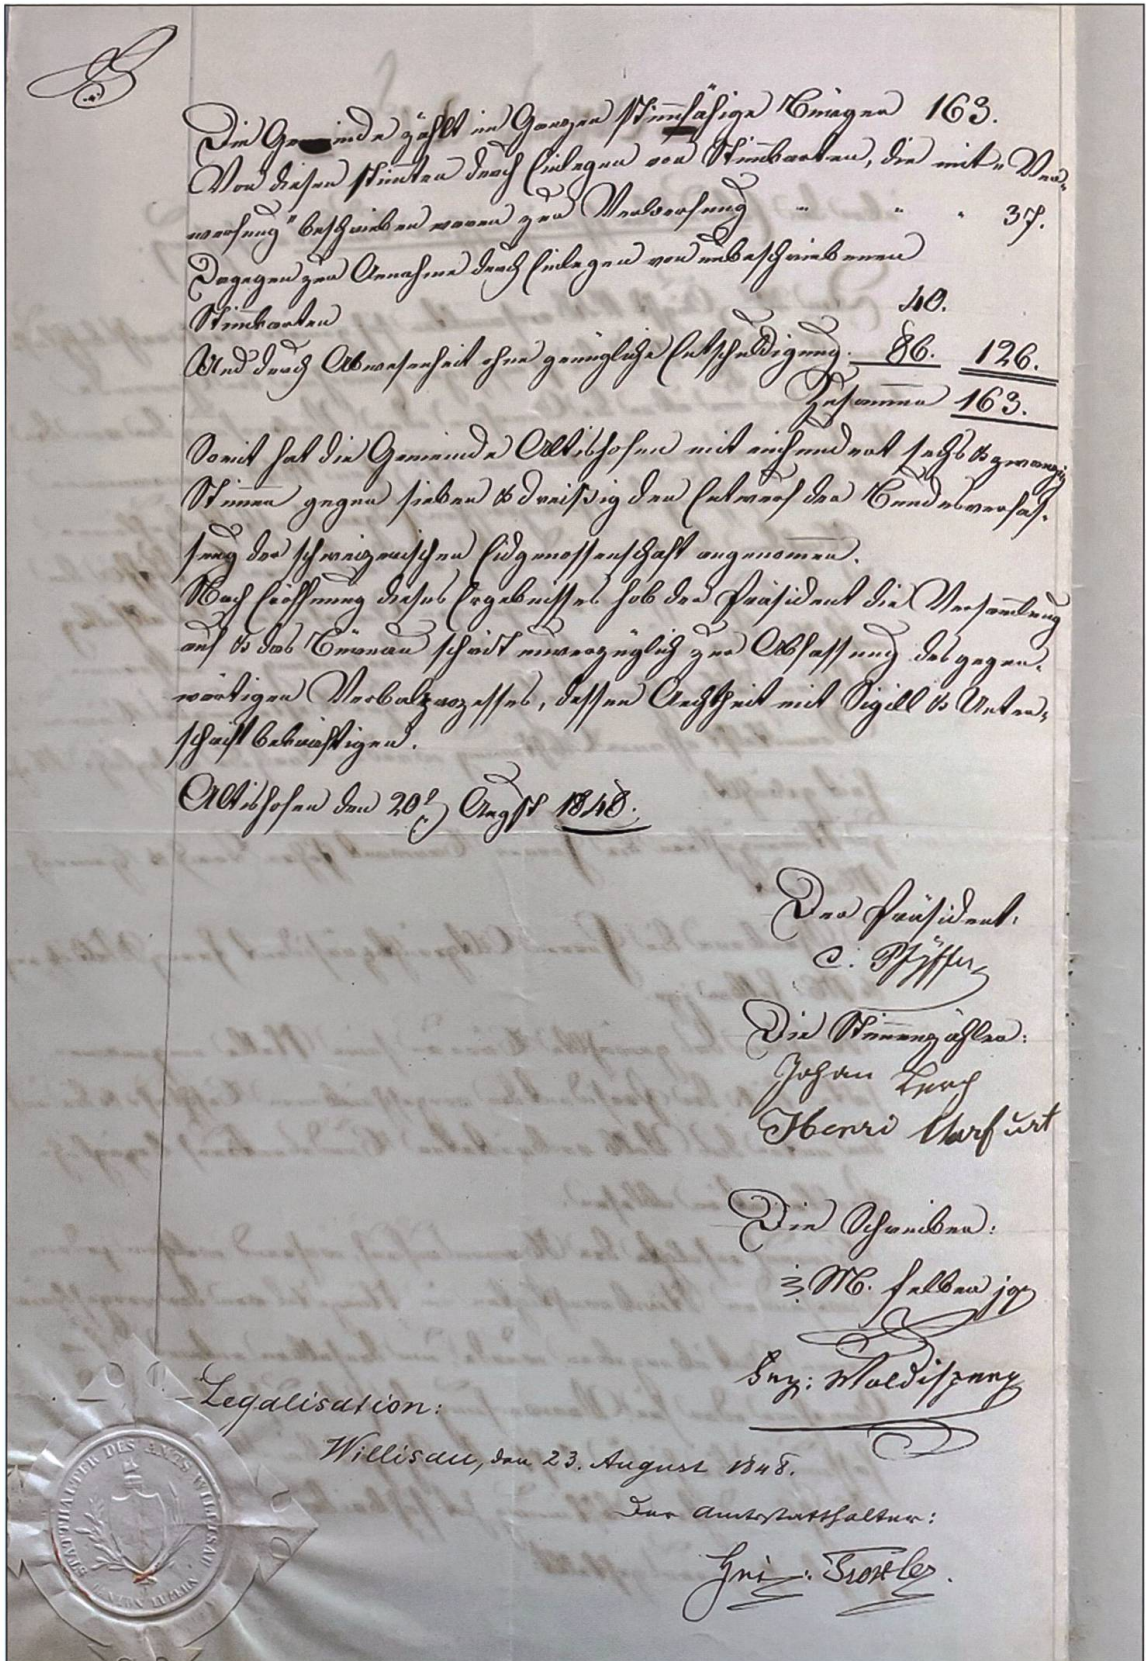 Die Gemeinde zählt im Ganzen stimmfähige Bürger 163.
Von diesen stimmten durch Einlegen von Stimkarten, die mit „Ver-
werfung" beschrieben waren zur Verwerfung " " " 37.
Dagegen zur Annahme durch Einlegen von unbeschriebenen
Stimkarten 40.
Und durch Abwesenheit ohne genügliche Entschuldigung. 86. 126.
Zusammen 163.
Somit hat die Gemeinde Altishofen mit einhundert sechs & zwanzig
Stimen gegen sieben & dreißig den Entwurf der Bundesverfas-
sung der schweizerischen Eidgenossenschaft angenomen.
Nach Eröffnung dieses Ergebnisses hob der Präsident die Versamlung
auf & das Büreau schritt unverzüglich zur Abfassung des gegen-
wärtigen Verbalprozesses, dessen Aechtheit mit Sigill & Unter-
schrift bekräftigen.
Altishofen den 20t Augst 1848.
Der Präsident:
C. Pfÿffer
Die Stimmenzähler:
Johan Lerch
Henri Marfurt
Die Schreiber:
M. Felber jg
Waldispurg
Legalisation:
Willisau, den 23. August 1848.
Der Amtsstatthalter:
Troxler.
STATTHALTER DES AMTS WILLISAU
KANTON LUZERN